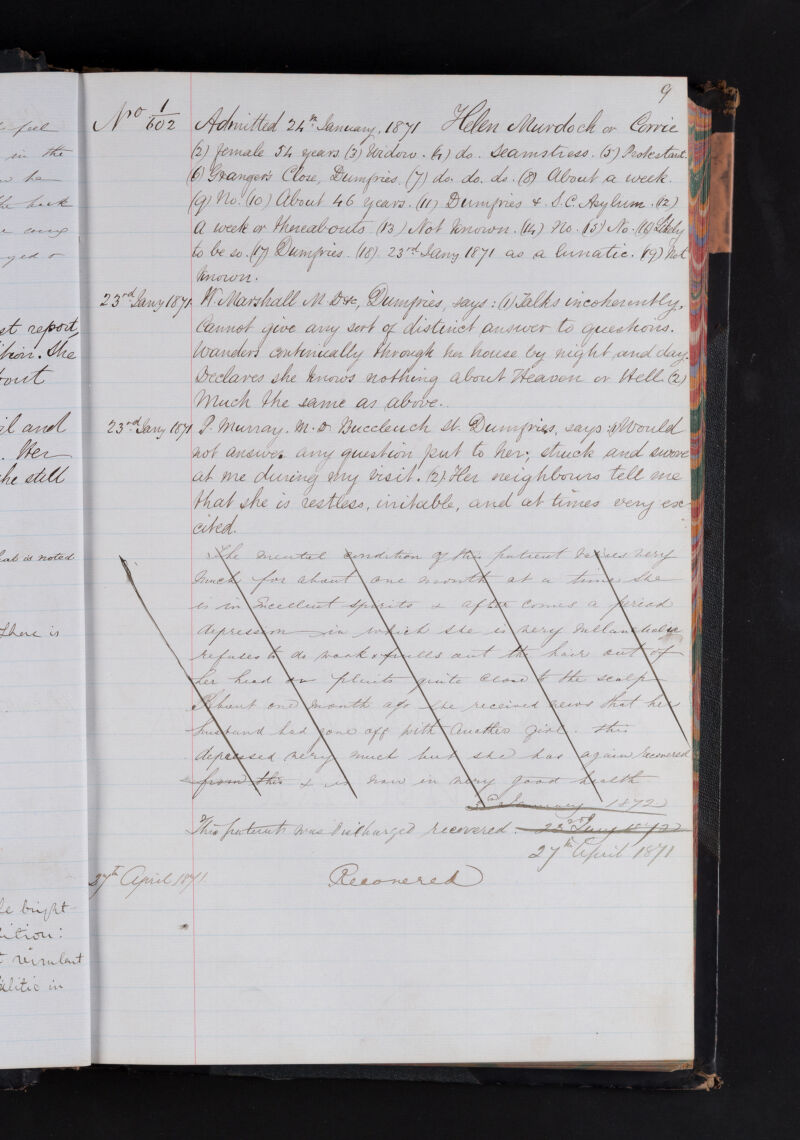 9
No 1/602 Admitted 24th January, 1871 Helen Murdoch or Corrie
(2) female 54 years (3) Widow. (4) do. Seamstress. (5) Protestant.
(6) Granger's Close, Dumfries. (7) do. do. do. (8) About a week.
(9) No. (10) About 46 years. (11) Dumfries & S.C. Asylum. (12)
A week or thereabouts. (13) Not known. (14) No. (15) No. (16) Likely
to be so. (17) Dumfries. (18). 23rd Jany 1871 as a lunatic. (19) Not
known.
23rd Jany 1871 W. Marshall M.D. &c, Dumfries, says: (1) Talks incoherently.
Cannot give any sort of distinct answer to questions.
Wanders continually through her house by night and day.
Declares she knows nothing about Heaven or Hell. (2)
Much the same as above.
23rd Jany 1871 P. Murray. M.D Buccleuch St. Dumfries, says (1) Would
not answer any question put to her; struck and swore
at me during my visit. (2) Her neighbours tell me
that she is restless, irritable, and at times very ex-
cited.
The mental condition of this patient varies very
much for about one month at a time she
is in Excellent spirits & after comes a period
depression in which she is very mellancholic
refuses to do work & pulls out the hair out of
her head or quite close to the scalp
About one month ago she received news that her
husband had gone off with another girl. this
depressed very much but she has again recovered
from this & is now in very good health
January 1872
This patient was discharged recovered. 23rd Jany 1872
27th April 1871
27th April 1871 Recovered
st report
ition. She
il and
. Her
he still
hat is noted
There is
le bright
dition:
in the